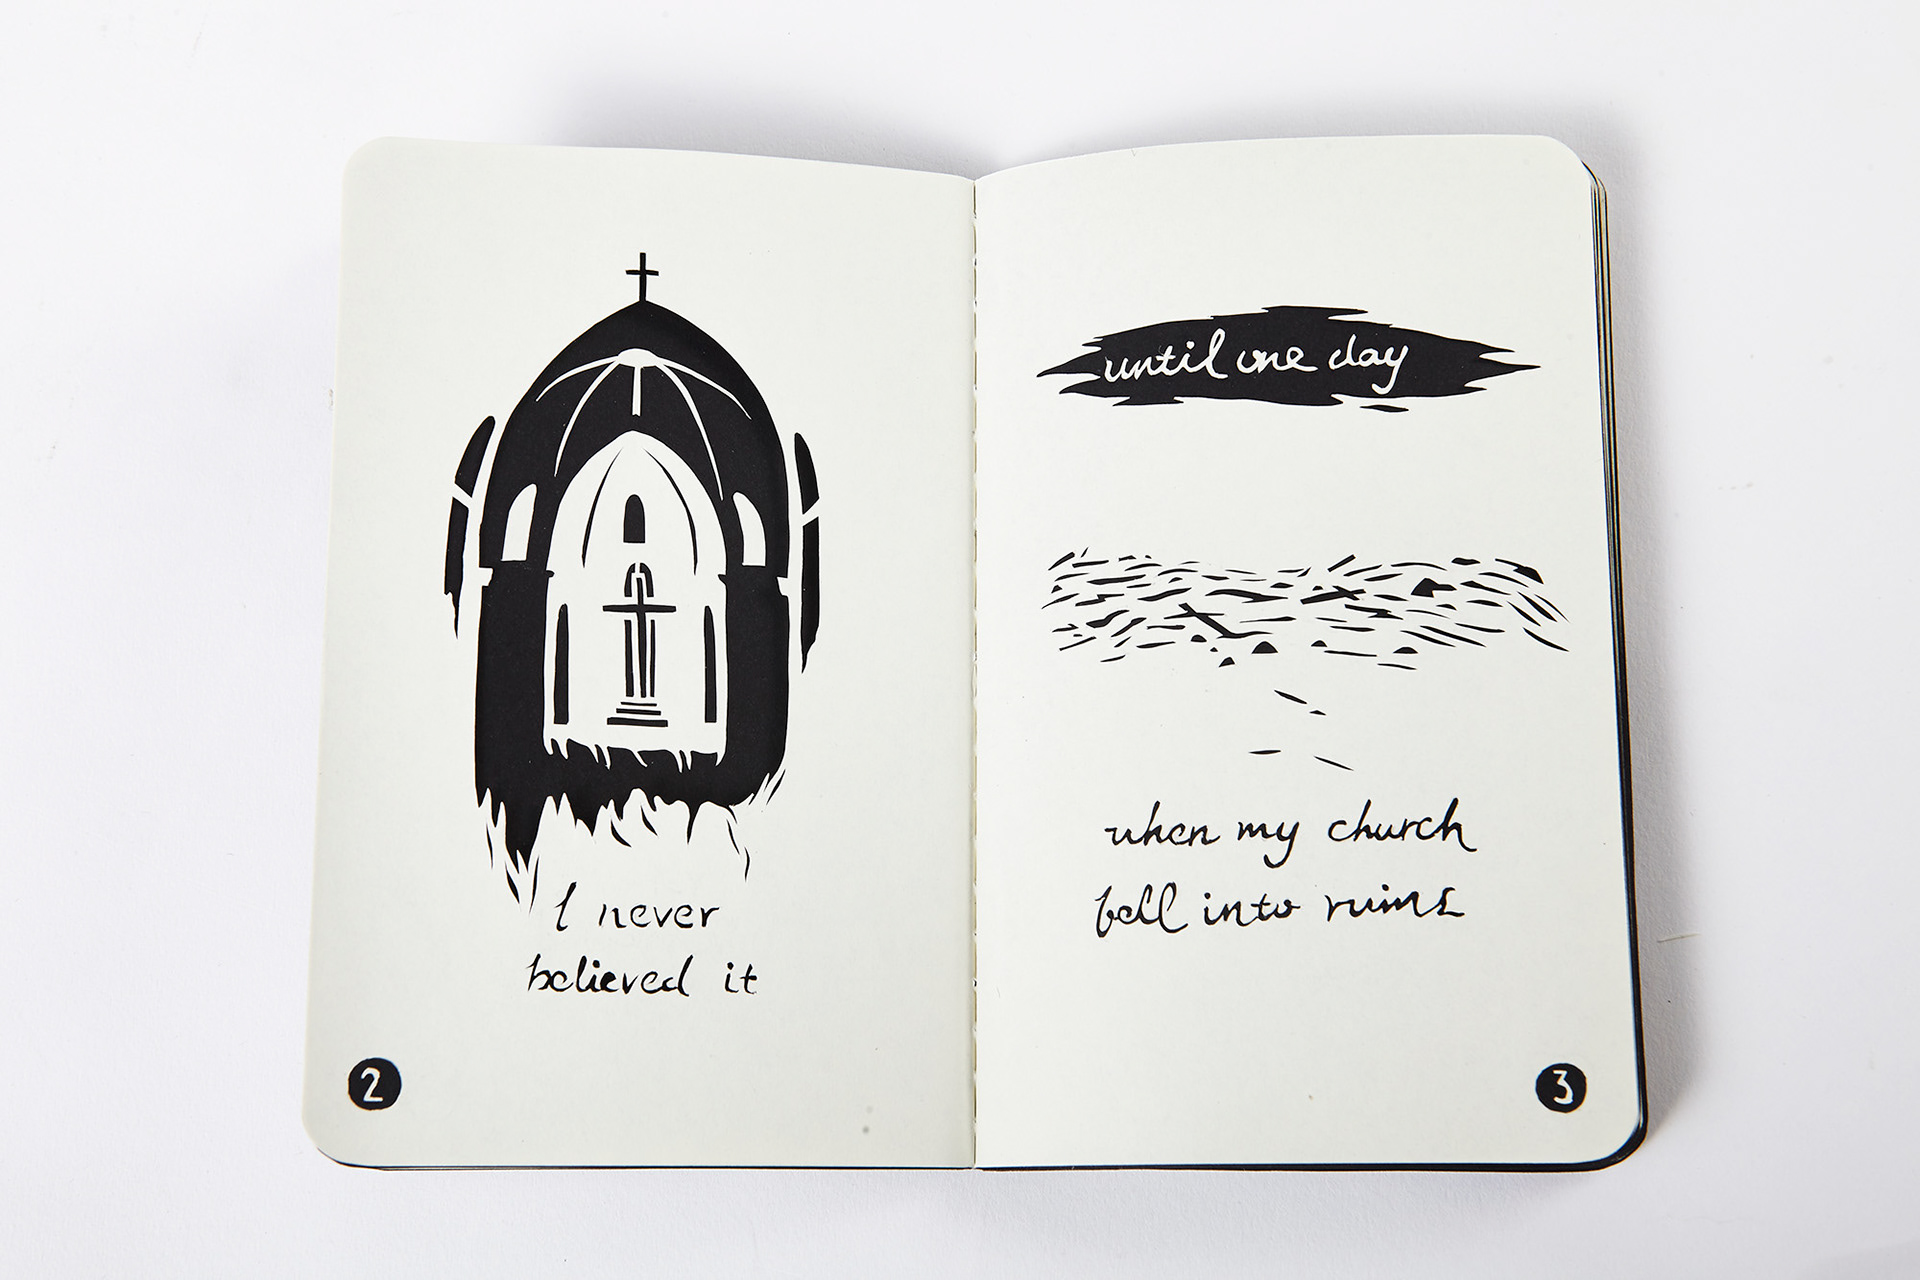 I never
believed it
2
until one day
when my church
fell into ruins
3